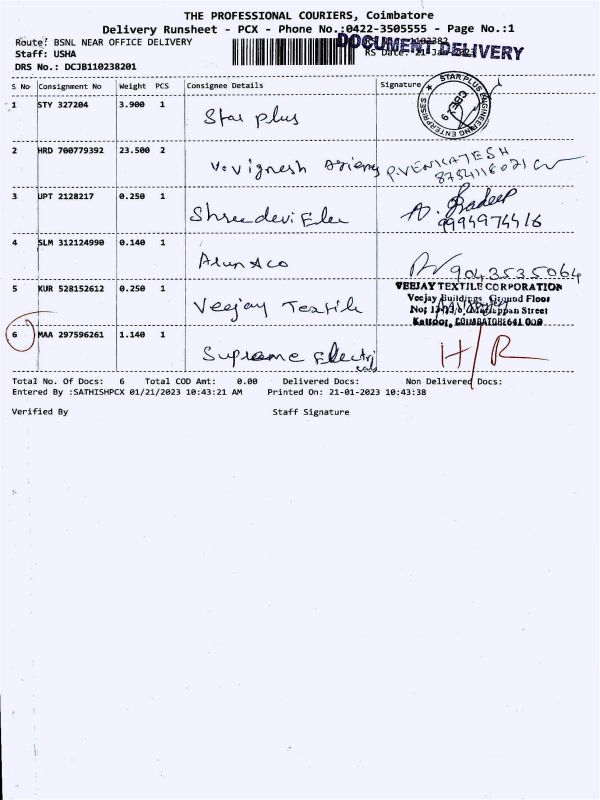 THE PROFESSIONAL COURIERS, Coimbatore
Delivery Runsheet - PCX - Phone No.:0422-3505555 - Page No.:1
Route: BSNL NEAR OFFICE DELIVERY
DOCUMENT DELIVERY
Staff: USHA
RS Date: 21-Jan-2023
DRS No.: DCJB110238201
S No Consignment No Weight PCS Consignee Details Signature
1 STY 327204 3.900 1 Star plus
STAR PLUS ENGINEERING ENTERPRISES
2 HRD 700779392 23.500 2 V.Vignesh P.VENKATESH
3 UPT 2128217 0.250 1 Shreedevi Elec
9994974416
4 SLM 312124990 0.140 1 Arun &co
9043535064
5 KUR 528152612 0.250 1 Veejay Textile
VEEJAY TEXTILE CORPORATION
Veejay Buildings, Ground Floor
Street
Kattoor, COIMBATORE 641 009
6 MAA 297596261 1.140 1 Supreme Electricals H/R
Total No. Of Docs: 6 Total COD Amt: 0.00 Delivered Docs: Non Delivered Docs:
Entered By :SATHISHPCX 01/21/2023 10:43:21 AM Printed On: 21-01-2023 10:43:38
Verified By Staff Signature